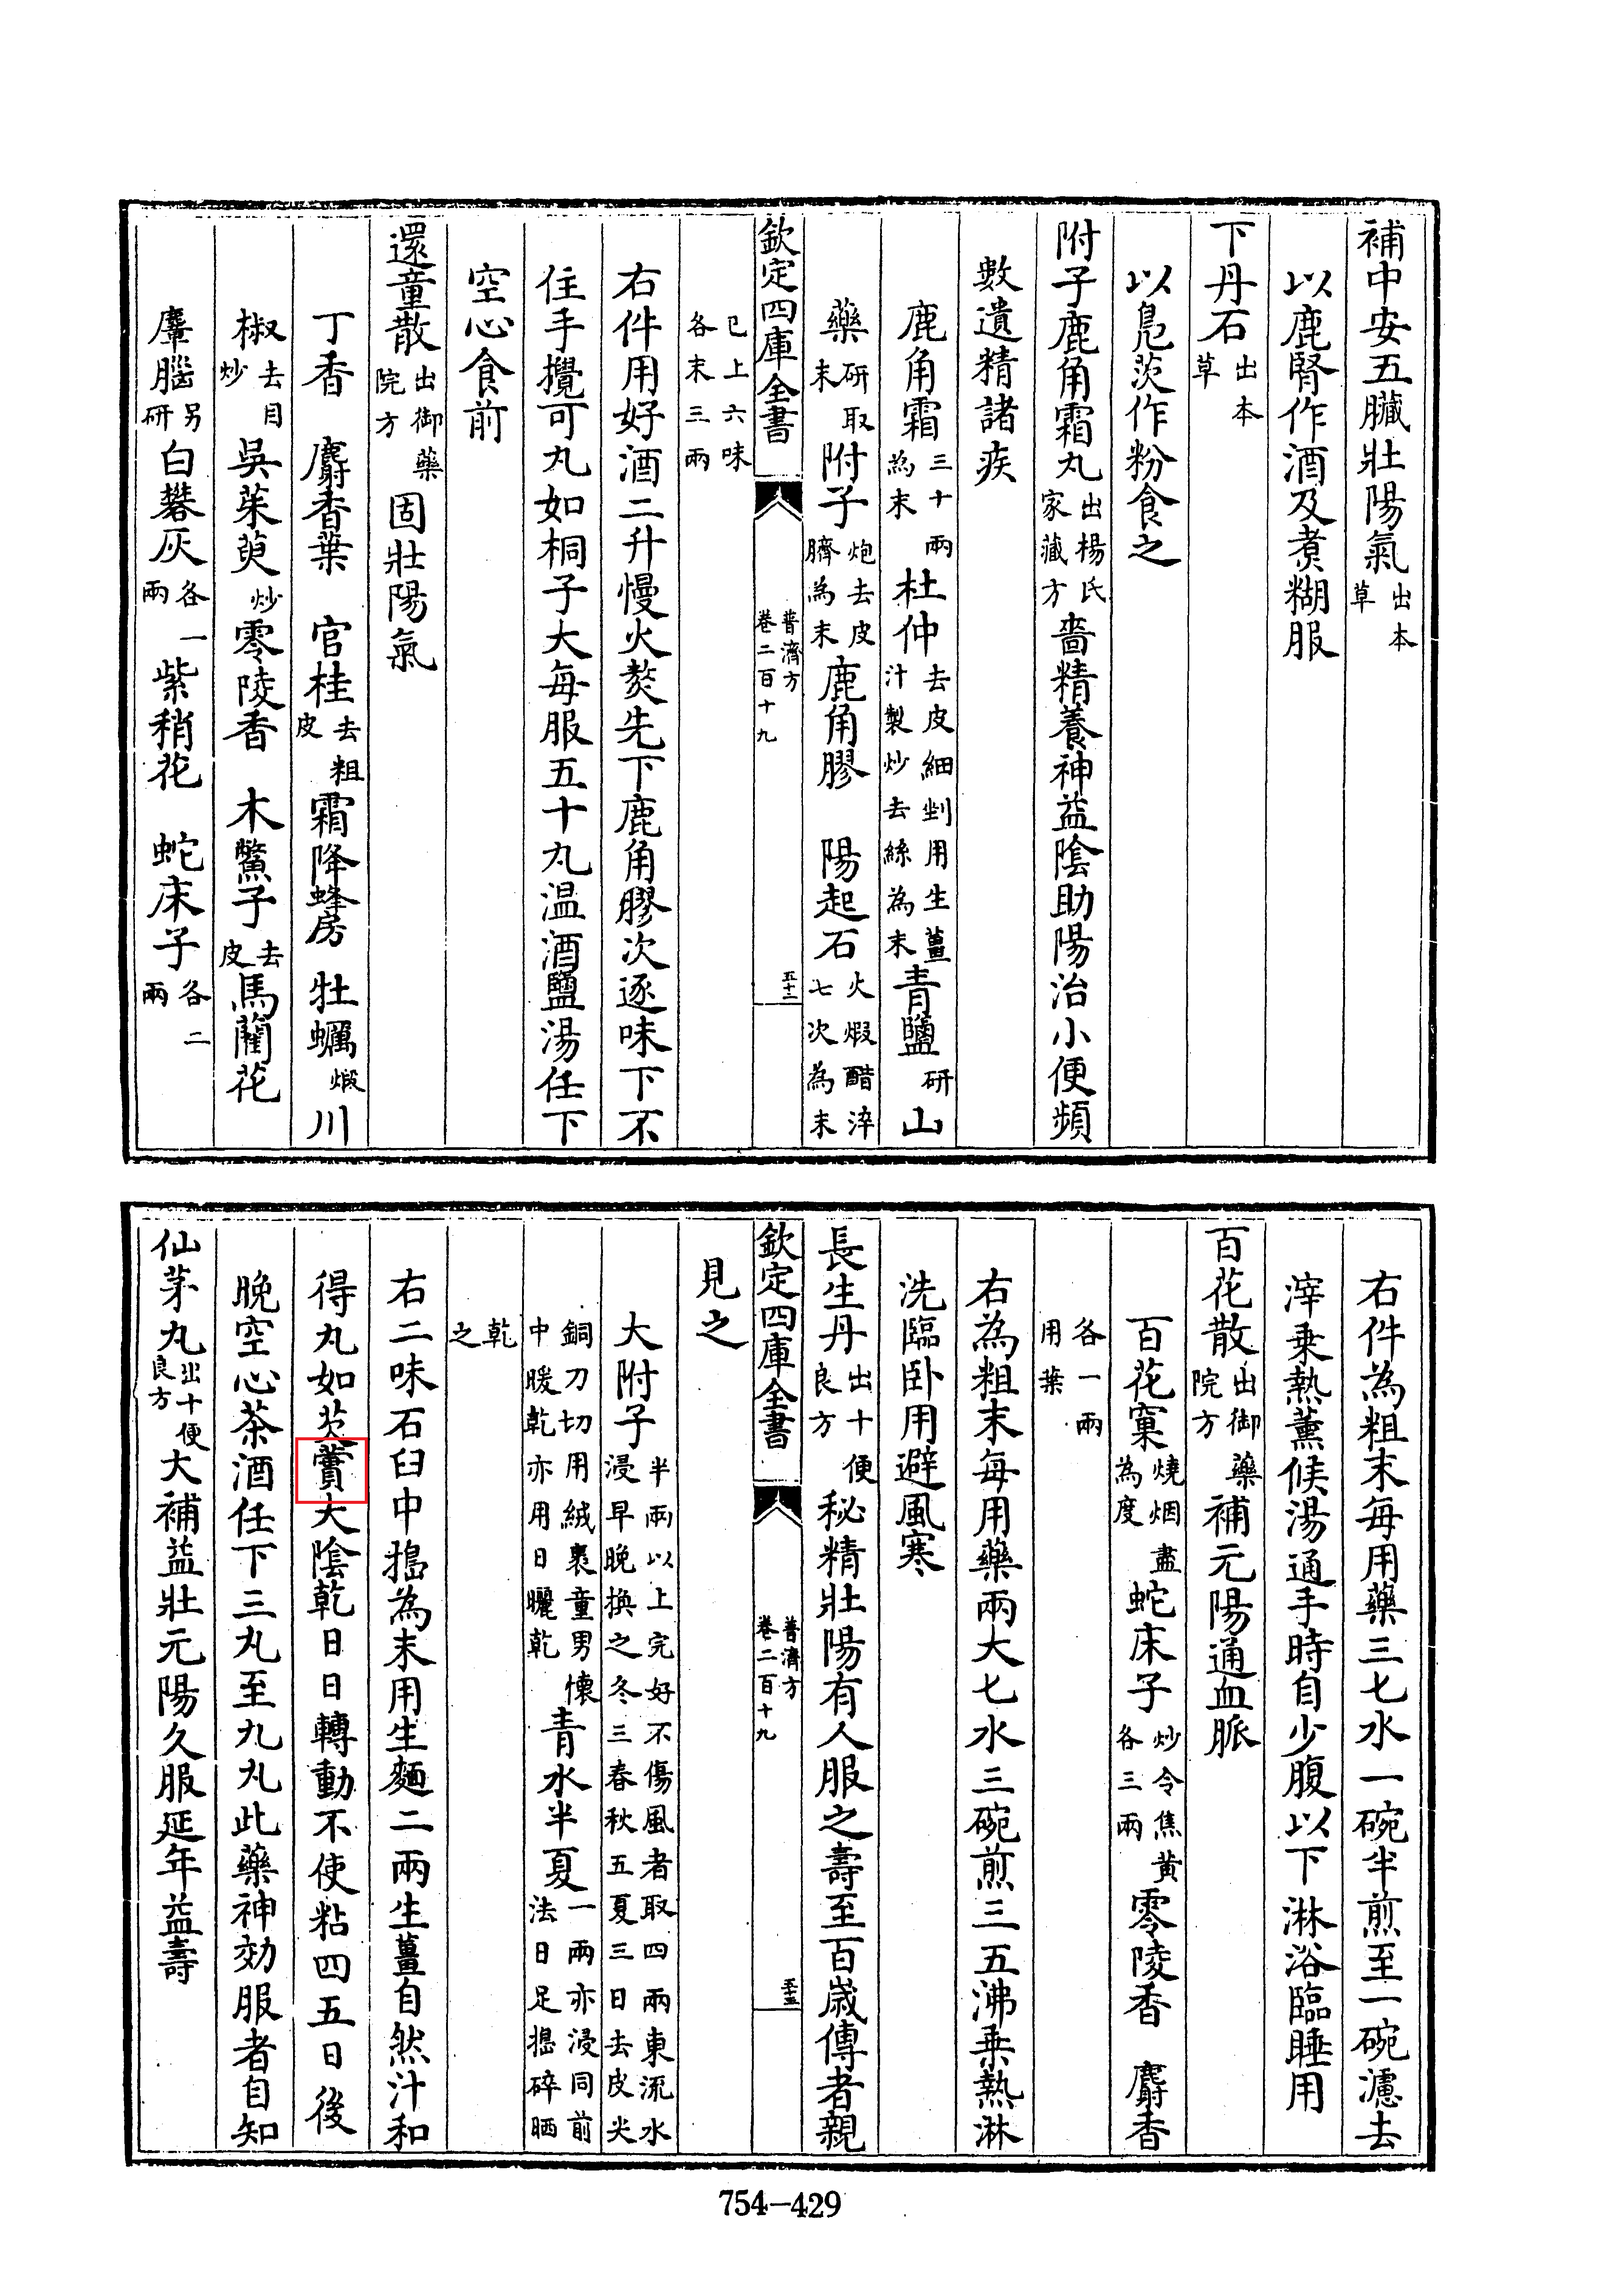 補中安五臟壯陽氣出本草
以鹿腎作酒及煮糊服
下丹石出本草
以鳧茨作粉食之
附子鹿角霜丸出楊氏家藏方嗇精養神益陰助陽治小便頻
數遺精諸疾
鹿角霜三十兩為末杜仲去皮細剉用生薑汁製炒去絲為末青鹽研山
藥研取末附子炮去皮臍為末鹿角膠　陽起石火煆醋淬七次為末
欽定四庫全書　普濟方卷二百十九　五十二
已上六味各末三兩
右件用好酒二升慢火熬先下鹿角膠次逐味下不
住手攪可丸如桐子大每服五十丸温酒鹽湯任下
空心食前
還童散出御藥院方固壯陽氣
丁香　麝香葉　官桂去粗皮霜降蜂房　牡蠣煅川
椒去目炒吳茱萸炒零陵香　木鱉子去皮馬藺花
麞腦另研白礬灰各一兩紫稍花　蛇床子各二兩
右件為粗末每用藥三七水一碗半煎至一碗濾去
滓乗熱薰候湯通手時自少腹以下淋浴臨睡用
百花散出御藥院方補元陽通血脈
百花窠燒烟盡為度蛇床子炒令焦黄各三兩零陵香　麝香
各一兩用葉
右為粗末每用藥兩大七水三碗煎三五沸乗熱淋
洗臨卧用避風寒
長生丹出十便良方秘精壯陽有人服之壽至百歳傳者親
欽定四庫全書　普濟方卷二百十九　五十三
見之
大附子半兩以上完好不傷風者取四兩東流水浸早晚換之冬三春秋五夏三日去皮尖
銅刀切用絨裹童男懷中暖乾亦用日曬乾青水半夏一兩亦浸同前法日足搗碎晒
乾之
右二味石臼中搗為末用生麵二兩生薑自然汁和
得丸如芡大陰乾日日轉動不使粘四五日後
晚空心茶酒任下三丸至九丸此藥神効服者自知
仙茅丸出十便良方大補益壯元陽久服延年益壽
754—429